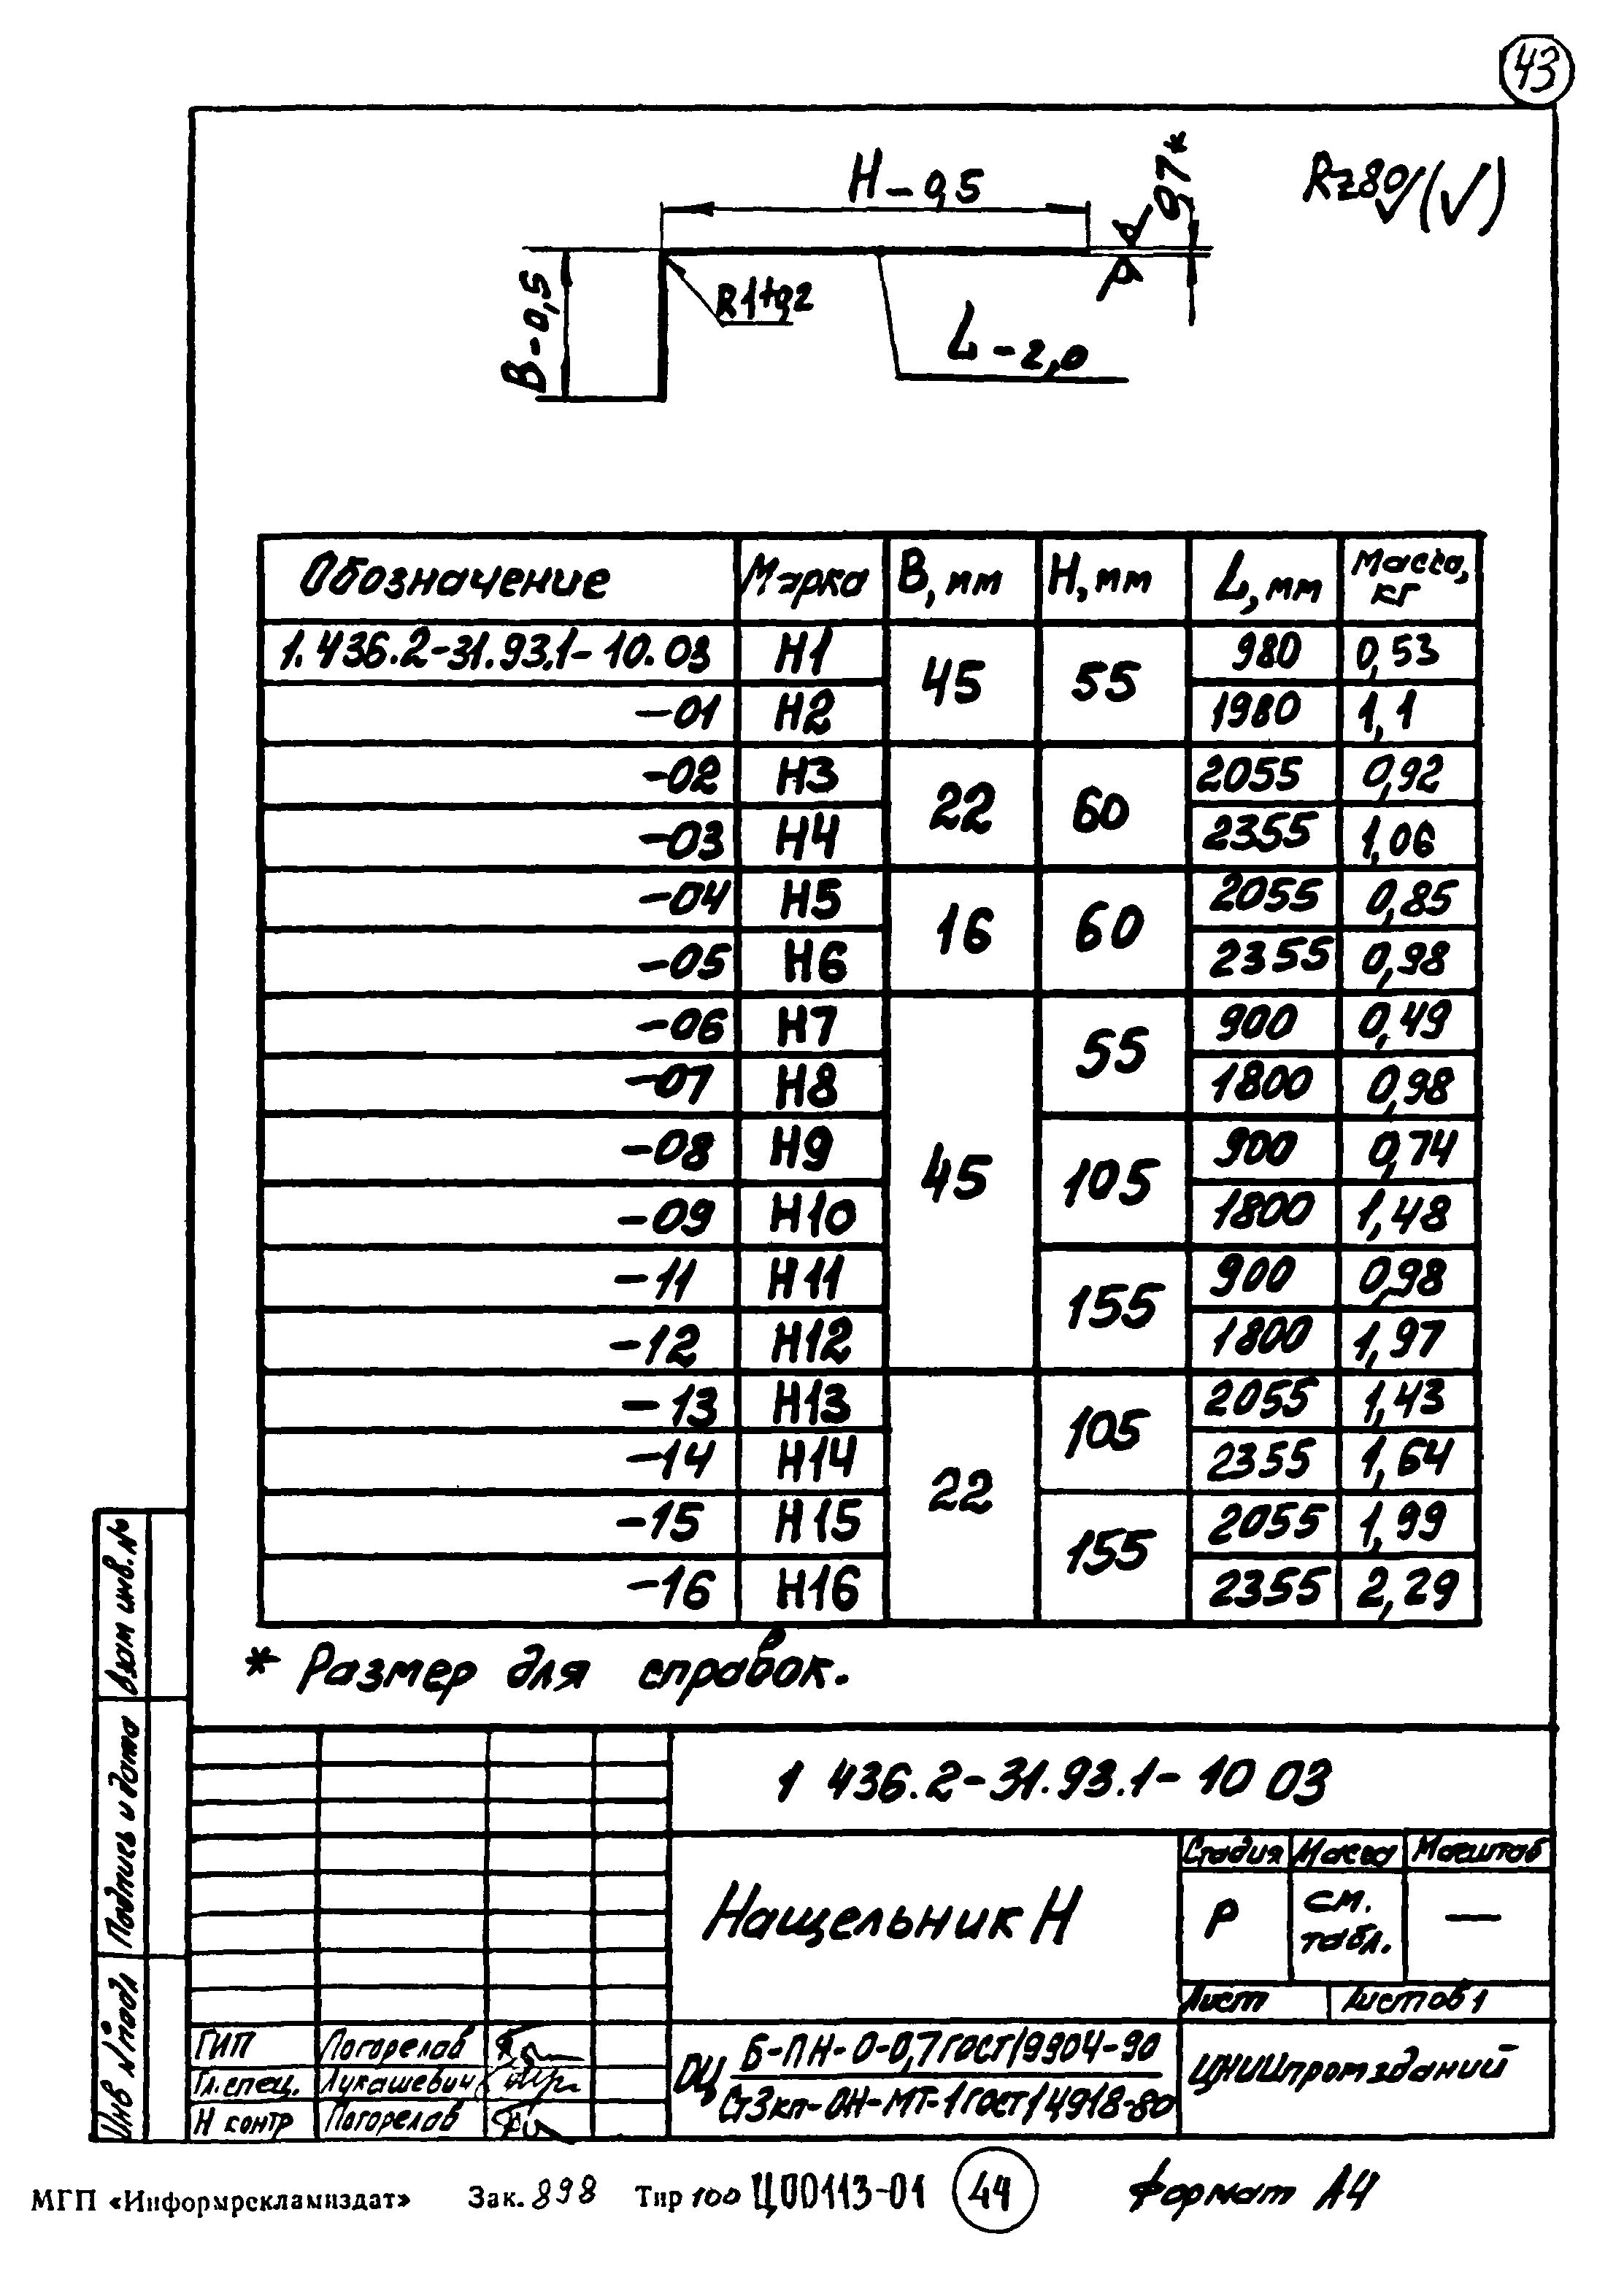 43
H-0,5
0,7*
Rz80 (√)
B-0,5
R1+0,2
L-2,0
Обозначение Марка B, мм H, мм L, мм Масса, кг
1.436.2-31.93.1-10.03 Н1 45 55 980 0,53
-01 Н2 1980 1,1
-02 Н3 22 60 2055 0,92
-03 Н4 2355 1,06
-04 Н5 16 60 2055 0,85
-05 Н6 2355 0,98
-06 Н7 45 55 900 0,49
-07 Н8 1800 0,98
-08 Н9 105 900 0,74
-09 Н10 1800 1,48
-11 Н11 155 900 0,98
-12 Н12 1800 1,97
-13 Н13 22 105 2055 1,43
-14 Н14 2355 1,64
-15 Н15 155 2055 1,99
-16 Н16 2355 2,29
* Размер для справок.
Взам инв. №
Подпись и дата
Инв № подл
1 436.2-31.93.1-10 03
Нащельник Н
Стадия Масса Масштаб
Р см. табл. —
Лист Листов 1
ГИП Погорелов
Гл. спец. Лукашевич
Н контр Погорелов
ОЦ Б-ПН-О-0,7 ГОСТ 19904-90
Ст3кп-ОН-МТ-1 ГОСТ 14918-80
ЦНИИпромзданий
МГП «Информрекламиздат» Зак. 898 Тир 100 Ц00113-01 44 Формат А4